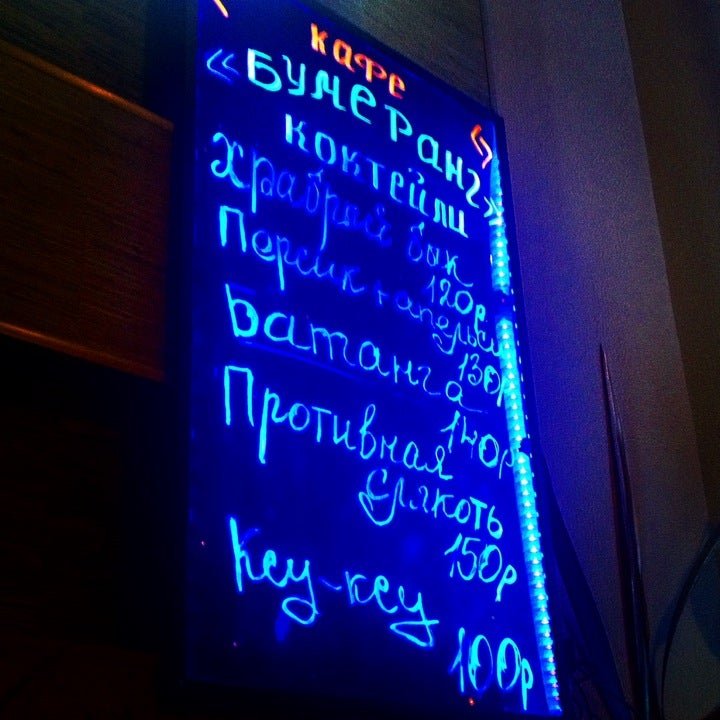 кафе
«Бумеранг»
коктейли
Храбрый бык
120р
Персик + апельсин
130р
Батанга
140р
Противная
слякоть
150р
Кеу-кеу
100р